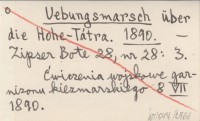 Uebungsmarsch über
die Hohe-Tátra. 1890. —
Zipser Bote 28, nr 28: 3.
Ćwiczenia wojskowe gar-
nizonu kiezmarskiego 8 VII
1890.